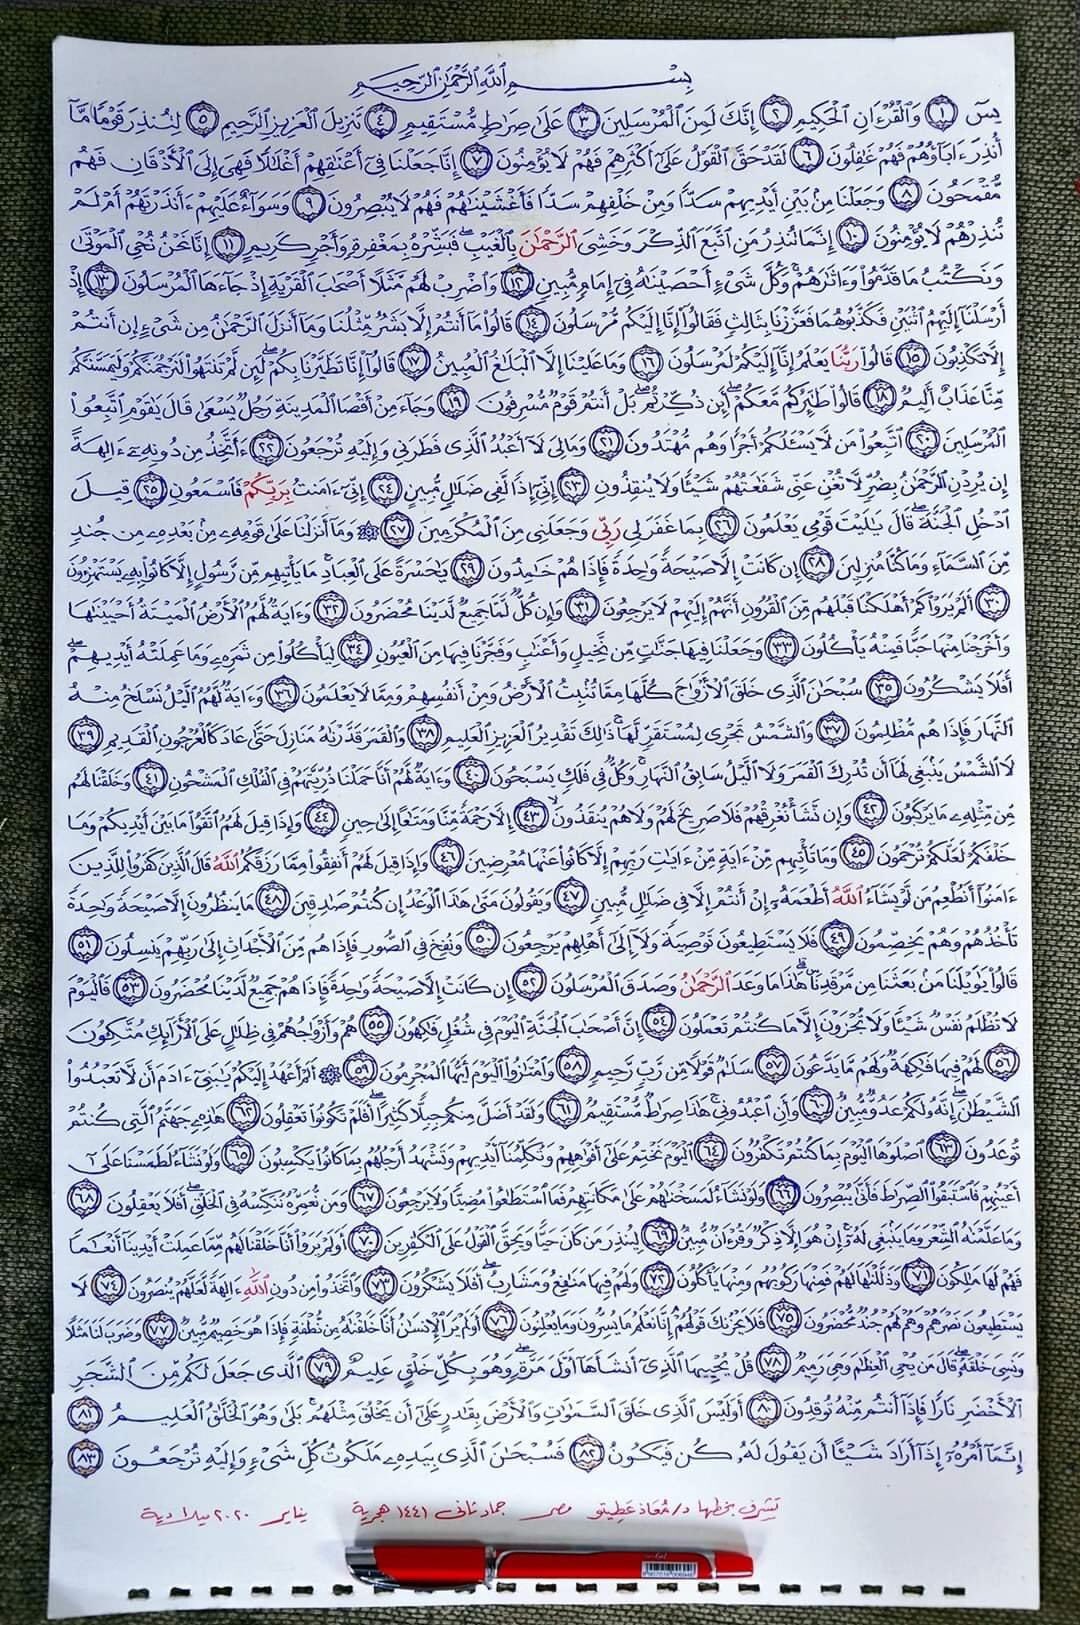 بِسْمِ ٱللَّهِ ٱلرَّحْمَٰنِ ٱلرَّحِيمِ
يسٓ ١ وَٱلْقُرْءَانِ ٱلْحَكِيمِ ٢ إِنَّكَ لَمِنَ ٱلْمُرْسَلِينَ ٣ عَلَىٰ صِرَٰطٍ مُّسْتَقِيمٍ ٤ تَنزِيلَ ٱلْعَزِيزِ ٱلرَّحِيمِ ٥ لِتُنذِرَ قَوْمًا مَّآ
أُنذِرَ ءَابَآؤُهُمْ فَهُمْ غَٰفِلُونَ ٦ لَقَدْ حَقَّ ٱلْقَوْلُ عَلَىٰٓ أَكْثَرِهِمْ فَهُمْ لَا يُؤْمِنُونَ ٧ إِنَّا جَعَلْنَا فِىٓ أَعْنَٰقِهِمْ أَغْلَٰلًا فَهِىَ إِلَى ٱلْأَذْقَانِ فَهُم
مُّقْمَحُونَ ٨ وَجَعَلْنَا مِنۢ بَيْنِ أَيْدِيهِمْ سَدًّا وَمِنْ خَلْفِهِمْ سَدًّا فَأَغْشَيْنَٰهُمْ فَهُمْ لَا يُبْصِرُونَ ٩ وَسَوَآءٌ عَلَيْهِمْ ءَأَنذَرْتَهُمْ أَمْ لَمْ
تُنذِرْهُمْ لَا يُؤْمِنُونَ ١٠ إِنَّمَا تُنذِرُ مَنِ ٱتَّبَعَ ٱلذِّكْرَ وَخَشِىَ ٱلرَّحْمَٰنَ بِٱلْغَيْبِ ۖ فَبَشِّرْهُ بِمَغْفِرَةٍ وَأَجْرٍ كَرِيمٍ ١١ إِنَّا نَحْنُ نُحْىِ ٱلْمَوْتَىٰ
وَنَكْتُبُ مَا قَدَّمُوا۟ وَءَاثَٰرَهُمْ ۚ وَكُلَّ شَىْءٍ أَحْصَيْنَٰهُ فِىٓ إِمَامٍ مُّبِينٍ ١٢ وَٱضْرِبْ لَهُم مَّثَلًا أَصْحَٰبَ ٱلْقَرْيَةِ إِذْ جَآءَهَا ٱلْمُرْسَلُونَ ١٣ إِذْ
أَرْسَلْنَآ إِلَيْهِمُ ٱثْنَيْنِ فَكَذَّبُوهُمَا فَعَزَّزْنَا بِثَالِثٍ فَقَالُوٓا۟ إِنَّآ إِلَيْكُم مُّرْسَلُونَ ١٤ قَالُوا۟ مَآ أَنتُمْ إِلَّا بَشَرٌ مِّثْلُنَا وَمَآ أَنزَلَ ٱلرَّحْمَٰنُ مِن شَىْءٍ إِنْ أَنتُمْ
إِلَّا تَكْذِبُونَ ١٥ قَالُوا۟ رَبُّنَا يَعْلَمُ إِنَّآ إِلَيْكُمْ لَمُرْسَلُونَ ١٦ وَمَا عَلَيْنَآ إِلَّا ٱلْبَلَٰغُ ٱلْمُبِينُ ١٧ قَالُوٓا۟ إِنَّا تَطَيَّرْنَا بِكُمْ ۖ لَئِن لَّمْ تَنتَهُوا۟ لَنَرْجُمَنَّكُمْ وَلَيَمَسَّنَّكُم
مِّنَّا عَذَابٌ أَلِيمٌ ١٨ قَالُوا۟ طَٰٓئِرُكُم مَّعَكُمْ ۚ أَئِن ذُكِّرْتُم ۚ بَلْ أَنتُمْ قَوْمٌ مُّسْرِفُونَ ١٩ وَجَآءَ مِنْ أَقْصَا ٱلْمَدِينَةِ رَجُلٌ يَسْعَىٰ قَالَ يَٰقَوْمِ ٱتَّبِعُوا۟
ٱلْمُرْسَلِينَ ٢٠ ٱتَّبِعُوا۟ مَن لَّا يَسْـَٔلُكُمْ أَجْرًا وَهُم مُّهْتَدُونَ ٢١ وَمَا لِىَ لَآ أَعْبُدُ ٱلَّذِى فَطَرَنِى وَإِلَيْهِ تُرْجَعُونَ ٢٢ ءَأَتَّخِذُ مِن دُونِهِۦٓ ءَالِهَةً
إِن يُرِدْنِ ٱلرَّحْمَٰنُ بِضُرٍّ لَّا تُغْنِ عَنِّى شَفَٰعَتُهُمْ شَيْـًٔا وَلَا يُنقِذُونِ ٢٣ إِنِّىٓ إِذًا لَّفِى ضَلَٰلٍ مُّبِينٍ ٢٤ إِنِّىٓ ءَامَنتُ بِرَبِّكُمْ فَٱسْمَعُونِ ٢٥ قِيلَ
ٱدْخُلِ ٱلْجَنَّةَ ۖ قَالَ يَٰلَيْتَ قَوْمِى يَعْلَمُونَ ٢٦ بِمَا غَفَرَ لِى رَبِّى وَجَعَلَنِى مِنَ ٱلْمُكْرَمِينَ ٢٧ ۞ وَمَآ أَنزَلْنَا عَلَىٰ قَوْمِهِۦ مِنۢ بَعْدِهِۦ مِن جُندٍ
مِّنَ ٱلسَّمَآءِ وَمَا كُنَّا مُنزِلِينَ ٢٨ إِن كَانَتْ إِلَّا صَيْحَةً وَٰحِدَةً فَإِذَا هُمْ خَٰمِدُونَ ٢٩ يَٰحَسْرَةً عَلَى ٱلْعِبَادِ ۚ مَا يَأْتِيهِم مِّن رَّسُولٍ إِلَّا كَانُوا۟ بِهِۦ يَسْتَهْزِءُونَ
٣٠ أَلَمْ يَرَوْا۟ كَمْ أَهْلَكْنَا قَبْلَهُم مِّنَ ٱلْقُرُونِ أَنَّهُمْ إِلَيْهِمْ لَا يَرْجِعُونَ ٣١ وَإِن كُلٌّ لَّمَّا جَمِيعٌ لَّدَيْنَا مُحْضَرُونَ ٣٢ وَءَايَةٌ لَّهُمُ ٱلْأَرْضُ ٱلْمَيْتَةُ أَحْيَيْنَٰهَا
وَأَخْرَجْنَا مِنْهَا حَبًّا فَمِنْهُ يَأْكُلُونَ ٣٣ وَجَعَلْنَا فِيهَا جَنَّٰتٍ مِّن نَّخِيلٍ وَأَعْنَٰبٍ وَفَجَّرْنَا فِيهَا مِنَ ٱلْعُيُونِ ٣٤ لِيَأْكُلُوا۟ مِن ثَمَرِهِۦ وَمَا عَمِلَتْهُ أَيْدِيهِمْ ۖ
أَفَلَا يَشْكُرُونَ ٣٥ سُبْحَٰنَ ٱلَّذِى خَلَقَ ٱلْأَزْوَٰجَ كُلَّهَا مِمَّا تُنۢبِتُ ٱلْأَرْضُ وَمِنْ أَنفُسِهِمْ وَمِمَّا لَا يَعْلَمُونَ ٣٦ وَءَايَةٌ لَّهُمُ ٱلَّيْلُ نَسْلَخُ مِنْهُ
ٱلنَّهَارَ فَإِذَا هُم مُّظْلِمُونَ ٣٧ وَٱلشَّمْسُ تَجْرِى لِمُسْتَقَرٍّ لَّهَا ۚ ذَٰلِكَ تَقْدِيرُ ٱلْعَزِيزِ ٱلْعَلِيمِ ٣٨ وَٱلْقَمَرَ قَدَّرْنَٰهُ مَنَازِلَ حَتَّىٰ عَادَ كَٱلْعُرْجُونِ ٱلْقَدِيمِ ٣٩
لَا ٱلشَّمْسُ يَنۢبَغِى لَهَآ أَن تُدْرِكَ ٱلْقَمَرَ وَلَا ٱلَّيْلُ سَابِقُ ٱلنَّهَارِ ۚ وَكُلٌّ فِى فَلَكٍ يَسْبَحُونَ ٤٠ وَءَايَةٌ لَّهُمْ أَنَّا حَمَلْنَا ذُرِّيَّتَهُمْ فِى ٱلْفُلْكِ ٱلْمَشْحُونِ ٤١ وَخَلَقْنَا لَهُم
مِّن مِّثْلِهِۦ مَا يَرْكَبُونَ ٤٢ وَإِن نَّشَأْ نُغْرِقْهُمْ فَلَا صَرِيخَ لَهُمْ وَلَا هُمْ يُنقَذُونَ ٤٣ إِلَّا رَحْمَةً مِّنَّا وَمَتَٰعًا إِلَىٰ حِينٍ ٤٤ وَإِذَا قِيلَ لَهُمُ ٱتَّقُوا۟ مَا بَيْنَ أَيْدِيكُمْ وَمَا
خَلْفَكُمْ لَعَلَّكُمْ تُرْحَمُونَ ٤٥ وَمَا تَأْتِيهِم مِّنْ ءَايَةٍ مِّنْ ءَايَٰتِ رَبِّهِمْ إِلَّا كَانُوا۟ عَنْهَا مُعْرِضِينَ ٤٦ وَإِذَا قِيلَ لَهُمْ أَنفِقُوا۟ مِمَّا رَزَقَكُمُ ٱللَّهُ قَالَ ٱلَّذِينَ كَفَرُوا۟ لِلَّذِينَ
ءَامَنُوٓا۟ أَنُطْعِمُ مَن لَّوْ يَشَآءُ ٱللَّهُ أَطْعَمَهُۥٓ إِنْ أَنتُمْ إِلَّا فِى ضَلَٰلٍ مُّبِينٍ ٤٧ وَيَقُولُونَ مَتَىٰ هَٰذَا ٱلْوَعْدُ إِن كُنتُمْ صَٰدِقِينَ ٤٨ مَا يَنظُرُونَ إِلَّا صَيْحَةً وَٰحِدَةً
تَأْخُذُهُمْ وَهُمْ يَخِصِّمُونَ ٤٩ فَلَا يَسْتَطِيعُونَ تَوْصِيَةً وَلَآ إِلَىٰٓ أَهْلِهِمْ يَرْجِعُونَ ٥٠ وَنُفِخَ فِى ٱلصُّورِ فَإِذَا هُم مِّنَ ٱلْأَجْدَاثِ إِلَىٰ رَبِّهِمْ يَنسِلُونَ ٥١
قَالُوا۟ يَٰوَيْلَنَا مَنۢ بَعَثَنَا مِن مَّرْقَدِنَا ۜ ۗ هَٰذَا مَا وَعَدَ ٱلرَّحْمَٰنُ وَصَدَقَ ٱلْمُرْسَلُونَ ٥٢ إِن كَانَتْ إِلَّا صَيْحَةً وَٰحِدَةً فَإِذَا هُمْ جَمِيعٌ لَّدَيْنَا مُحْضَرُونَ ٥٣ فَٱلْيَوْمَ
لَا تُظْلَمُ نَفْسٌ شَيْـًٔا وَلَا تُجْزَوْنَ إِلَّا مَا كُنتُمْ تَعْمَلُونَ ٥٤ إِنَّ أَصْحَٰبَ ٱلْجَنَّةِ ٱلْيَوْمَ فِى شُغُلٍ فَٰكِهُونَ ٥٥ هُمْ وَأَزْوَٰجُهُمْ فِى ظِلَٰلٍ عَلَى ٱلْأَرَآئِكِ مُتَّكِـُٔونَ
٥٦ لَهُمْ فِيهَا فَٰكِهَةٌ وَلَهُم مَّا يَدَّعُونَ ٥٧ سَلَٰمٌ قَوْلًا مِّن رَّبٍّ رَّحِيمٍ ٥٨ وَٱمْتَٰزُوا۟ ٱلْيَوْمَ أَيُّهَا ٱلْمُجْرِمُونَ ٥٩ ۞ أَلَمْ أَعْهَدْ إِلَيْكُمْ يَٰبَنِىٓ ءَادَمَ أَن لَّا تَعْبُدُوا۟
ٱلشَّيْطَٰنَ ۖ إِنَّهُۥ لَكُمْ عَدُوٌّ مُّبِينٌ ٦٠ وَأَنِ ٱعْبُدُونِى ۚ هَٰذَا صِرَٰطٌ مُّسْتَقِيمٌ ٦١ وَلَقَدْ أَضَلَّ مِنكُمْ جِبِلًّا كَثِيرًا ۖ أَفَلَمْ تَكُونُوا۟ تَعْقِلُونَ ٦٢ هَٰذِهِۦ جَهَنَّمُ ٱلَّتِى كُنتُمْ
تُوعَدُونَ ٦٣ ٱصْلَوْهَا ٱلْيَوْمَ بِمَا كُنتُمْ تَكْفُرُونَ ٦٤ ٱلْيَوْمَ نَخْتِمُ عَلَىٰٓ أَفْوَٰهِهِمْ وَتُكَلِّمُنَآ أَيْدِيهِمْ وَتَشْهَدُ أَرْجُلُهُم بِمَا كَانُوا۟ يَكْسِبُونَ ٦٥ وَلَوْ نَشَآءُ لَطَمَسْنَا عَلَىٰٓ
أَعْيُنِهِمْ فَٱسْتَبَقُوا۟ ٱلصِّرَٰطَ فَأَنَّىٰ يُبْصِرُونَ ٦٦ وَلَوْ نَشَآءُ لَمَسَخْنَٰهُمْ عَلَىٰ مَكَانَتِهِمْ فَمَا ٱسْتَطَٰعُوا۟ مُضِيًّا وَلَا يَرْجِعُونَ ٦٧ وَمَن نُّعَمِّرْهُ نُنَكِّسْهُ فِى ٱلْخَلْقِ ۖ أَفَلَا يَعْقِلُونَ ٦٨
وَمَا عَلَّمْنَٰهُ ٱلشِّعْرَ وَمَا يَنۢبَغِى لَهُۥٓ ۚ إِنْ هُوَ إِلَّا ذِكْرٌ وَقُرْءَانٌ مُّبِينٌ ٦٩ لِّيُنذِرَ مَن كَانَ حَيًّا وَيَحِقَّ ٱلْقَوْلُ عَلَى ٱلْكَٰفِرِينَ ٧٠ أَوَلَمْ يَرَوْا۟ أَنَّا خَلَقْنَا لَهُم مِّمَّا عَمِلَتْ أَيْدِينَآ أَنْعَٰمًا
فَهُمْ لَهَا مَٰلِكُونَ ٧١ وَذَلَّلْنَٰهَا لَهُمْ فَمِنْهَا رَكُوبُهُمْ وَمِنْهَا يَأْكُلُونَ ٧٢ وَلَهُمْ فِيهَا مَنَٰفِعُ وَمَشَارِبُ ۖ أَفَلَا يَشْكُرُونَ ٧٣ وَٱتَّخَذُوا۟ مِن دُونِ ٱللَّهِ ءَالِهَةً لَّعَلَّهُمْ يُنصَرُونَ ٧٤ لَا
يَسْتَطِيعُونَ نَصْرَهُمْ وَهُمْ لَهُمْ جُندٌ مُّحْضَرُونَ ٧٥ فَلَا يَحْزُنكَ قَوْلُهُمْ ۘ إِنَّا نَعْلَمُ مَا يُسِرُّونَ وَمَا يُعْلِنُونَ ٧٦ أَوَلَمْ يَرَ ٱلْإِنسَٰنُ أَنَّا خَلَقْنَٰهُ مِن نُّطْفَةٍ فَإِذَا هُوَ خَصِيمٌ مُّبِينٌ ٧٧ وَضَرَبَ لَنَا مَثَلًا
وَنَسِىَ خَلْقَهُۥ ۖ قَالَ مَن يُحْىِ ٱلْعِظَٰمَ وَهِىَ رَمِيمٌ ٧٨ قُلْ يُحْيِيهَا ٱلَّذِىٓ أَنشَأَهَآ أَوَّلَ مَرَّةٍ ۖ وَهُوَ بِكُلِّ خَلْقٍ عَلِيمٌ ٧٩ ٱلَّذِى جَعَلَ لَكُم مِّنَ ٱلشَّجَرِ
ٱلْأَخْضَرِ نَارًا فَإِذَآ أَنتُم مِّنْهُ تُوقِدُونَ ٨٠ أَوَلَيْسَ ٱلَّذِى خَلَقَ ٱلسَّمَٰوَٰتِ وَٱلْأَرْضَ بِقَٰدِرٍ عَلَىٰٓ أَن يَخْلُقَ مِثْلَهُم ۚ بَلَىٰ وَهُوَ ٱلْخَلَّٰقُ ٱلْعَلِيمُ ٨١
إِنَّمَآ أَمْرُهُۥٓ إِذَآ أَرَادَ شَيْـًٔا أَن يَقُولَ لَهُۥ كُن فَيَكُونُ ٨٢ فَسُبْحَٰنَ ٱلَّذِى بِيَدِهِۦ مَلَكُوتُ كُلِّ شَىْءٍ وَإِلَيْهِ تُرْجَعُونَ ٨٣
تشرف بخطها د/ مُعَاذ عَطِيتو مصر جماد ثانى ١٤٤١ هجرية يناير ٢٠٢٠ ميلادية